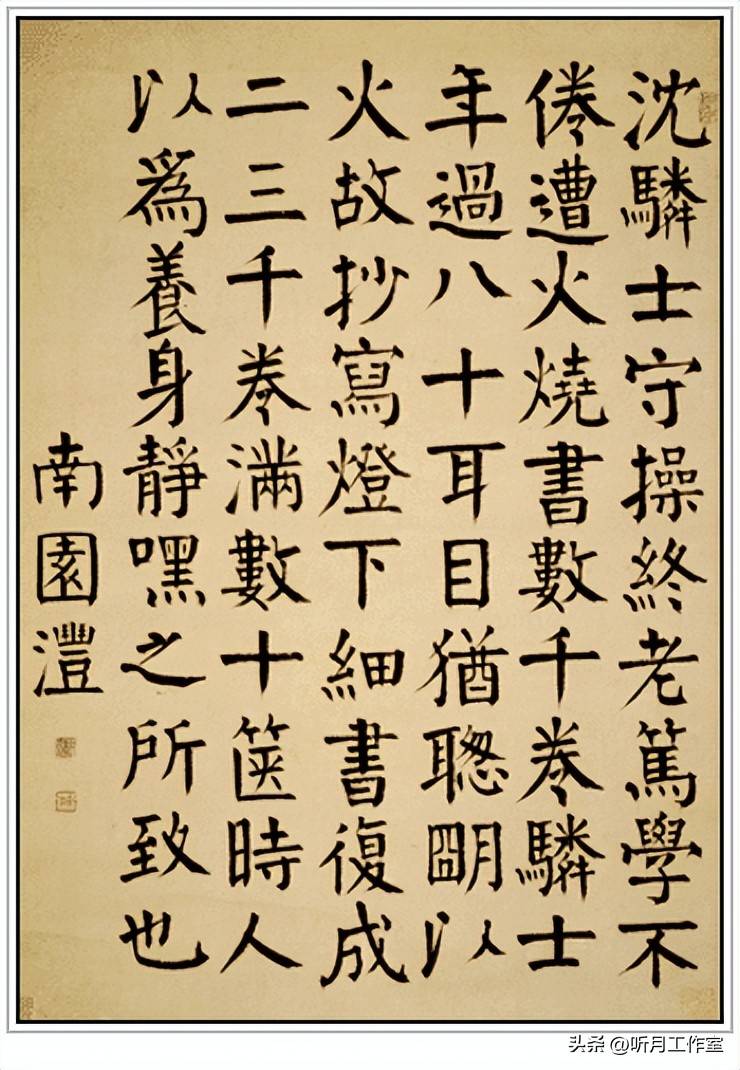 沈驎士守操終老篤學不
倦遭火燒書數千卷驎士
年過八十耳目猶聰朙以
火故抄寫燈下細書復成
二三千卷滿數十篋時人
以爲養身靜嘿之所致也
南園灃
头条 @听月工作室